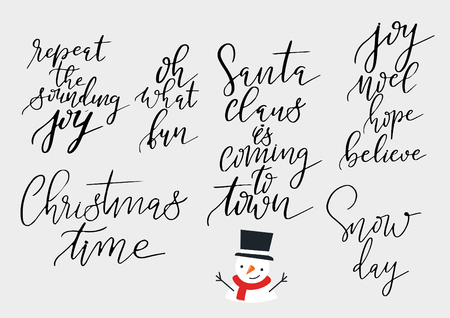 repeat
the
sounding
joy
oh
what
fun
Santa
claus
is
coming
to
town
joy
noel
hope
believe
Christmas
time
Snow
day